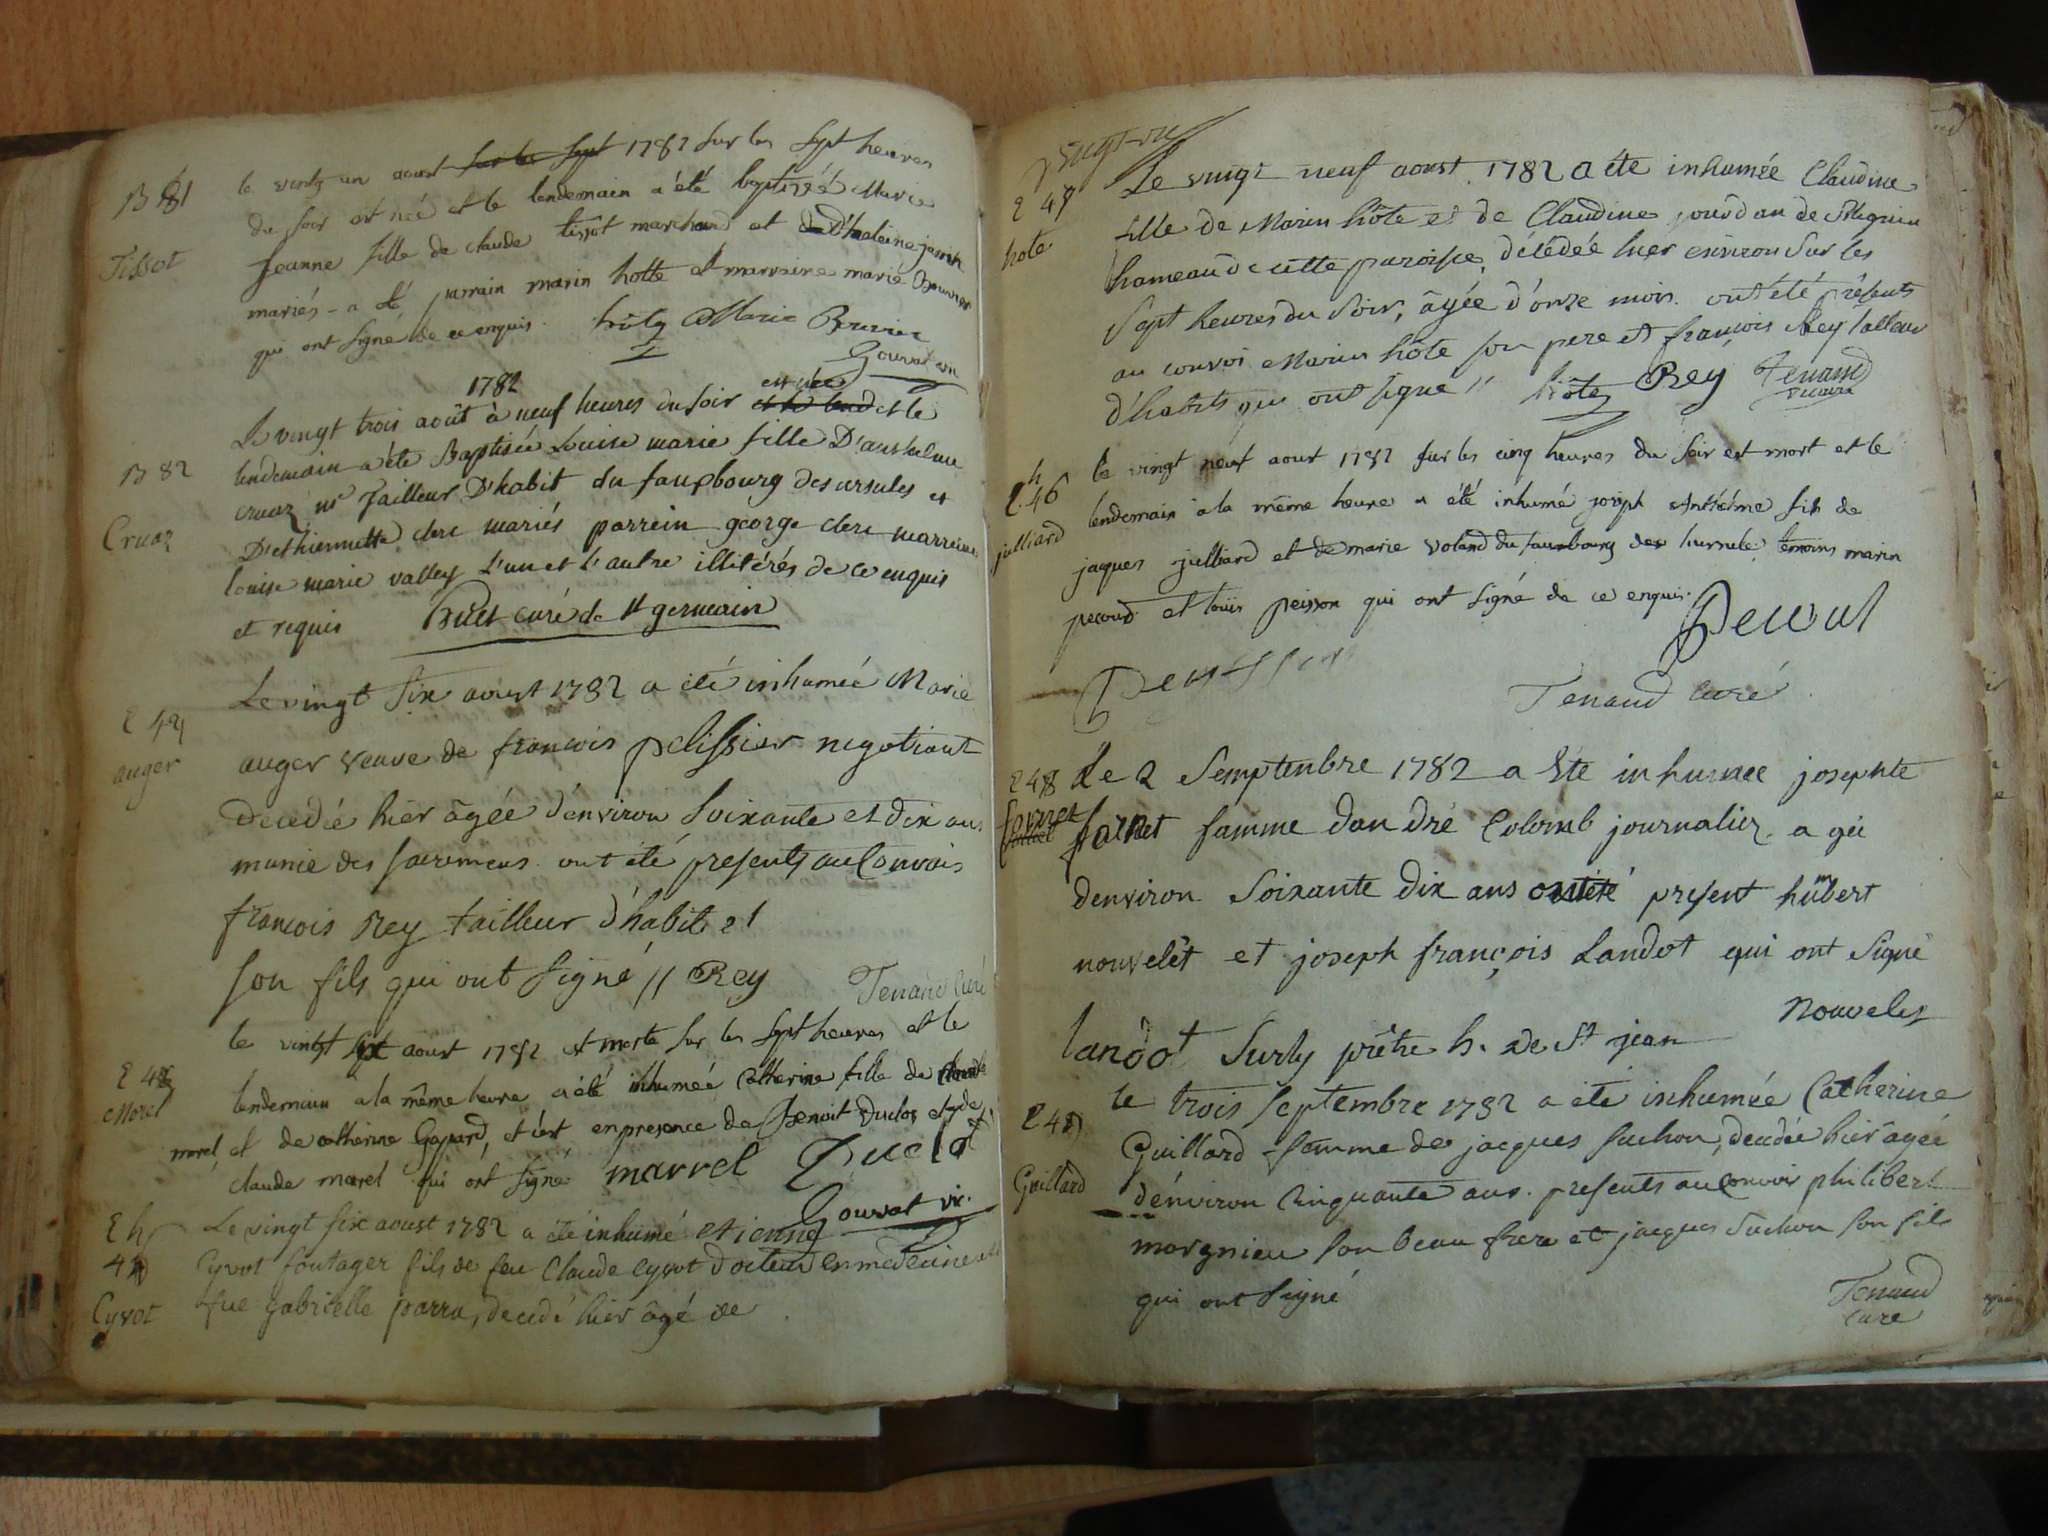 B 81
Tissot
le vintg un aoust sur les sept 1782 sur les sept heures
du soir est née et le lendemain a été baptisée Marie
Jeanne fille de claude tissot marchand et
mariés - a été parrain marin hotte et marraine marie
qui ont signé de ce enquis. hôte Marie Bruvier
Gouvat vic
1782
B 82
Cruaz
Le vingt trois août à neuf heures du soir est née et le
lendemain a été Baptisée Louise marie fille D'anthelme
cruaz me Tailleur D'habit du fauxbourg des ursules et
D'ethiennette clerc mariés parrein george clerc marreine
louise marie valley L'un et L'autre illitérés de ce enquis
et requis Huet curé de St germain
auger
Le vingt six aoust 1782 a été inhumée Marie
auger veuve de francois pelissier negotiant
decedée hier âgée d'environ soixante et dix ans
munie des sacremens. ont été presents au Convois
francois Rey tailleur d'habit et
son fils qui ont signé // Rey Tenand Curé
Morel
le vingt sept aoust 1782 est morte sur les sept heures et le
lendemain a la même heure a été inhumée Catherine fille de claude
morel et de catherine Gopard, et c'est en presence de Benoit Duclos et de
claude morel qui ont signé marrel Duclos
Gouvat vic.
Cyvot
Le vingt six aoust 1782 a été inhumé etienne
Cyvot fontager fils de feu Claude cyvot Docteur en medecine et de
fue gabrielle parra, decedé hier âgé de
E 47
hote
Le vingt neuf aoust 1782 a été inhumée Claudine
fille de Marin hôte et de Claudine jourdan de
hameau de cette paroisse, décédée hier environ sur les
sept heures du soir, âgée d'onze mois. ont été présents
au convoi Marin hôte son pere et francois Rey tailleur
d'habits qui ont signé // hôte Rey Tenand
vicaire
E. 46
julliard
le vingt neuf aoust 1782 sur les cinq heures du soir est mort et le
lendemain a la même heure a été inhumé joseph Anthelme fils de
jaques julliard et de marie Voland du faurbourg des hursule. temoins marin
pecoud et louis peisson qui ont signé de ce enquis.
Pecout
Tenand curé
E 48
fornet
Le 2 Semptenbre 1782 a été inhumee josephte
fornet famme dandré Colomb journalier a gée
denviron Soixante dix ans ontété present humbert
nouvelêt et joseph françois Landot qui ont Signé
Nouvelet
landot Surly prêtre h. de St jean
E 49
Guillard
le trois septembre 1782 a été inhumée Catherine
Guillard femme de jacques suchon, decedée hier agée
d'environ Cinquante ans. presents au Convoi philibert
morgnieu son beau frere et jacques Suchon son fils
qui ont signé
Tenand
Curé